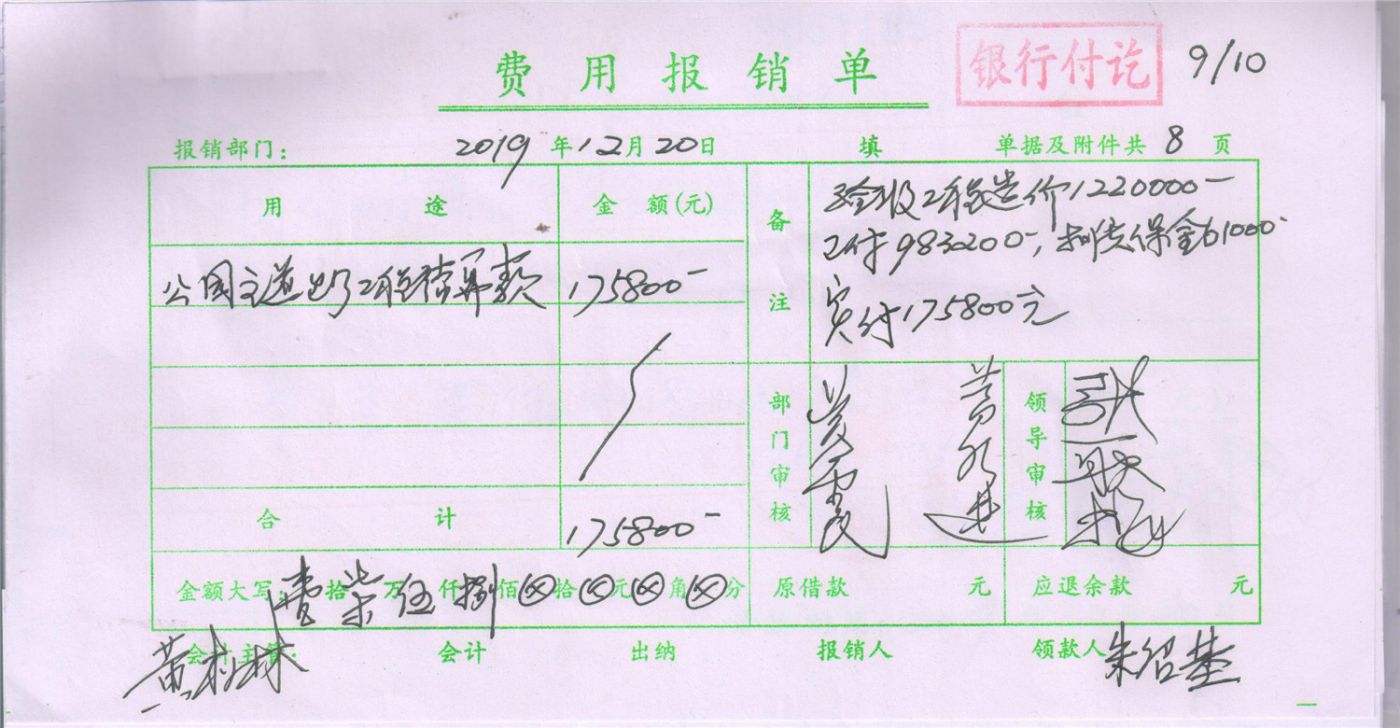 费用报销单
银行付讫
9/10
报销部门： 2019年12月20日 填 单据及附件共8页
用途 金额(元) 备注
验收工程造价1220000-
已付983200-，扣质保金61000-
实付175800元
公园主道路工程结算款 175800-
部门审核 领导审核
合计 175800-
金额大写 壹拾柒万伍仟捌佰⊗拾⊗元⊗角⊗分 原借款 元 应退余款 元
会计主管： 会计 出纳 报销人 领款人 朱绍基
黄树林